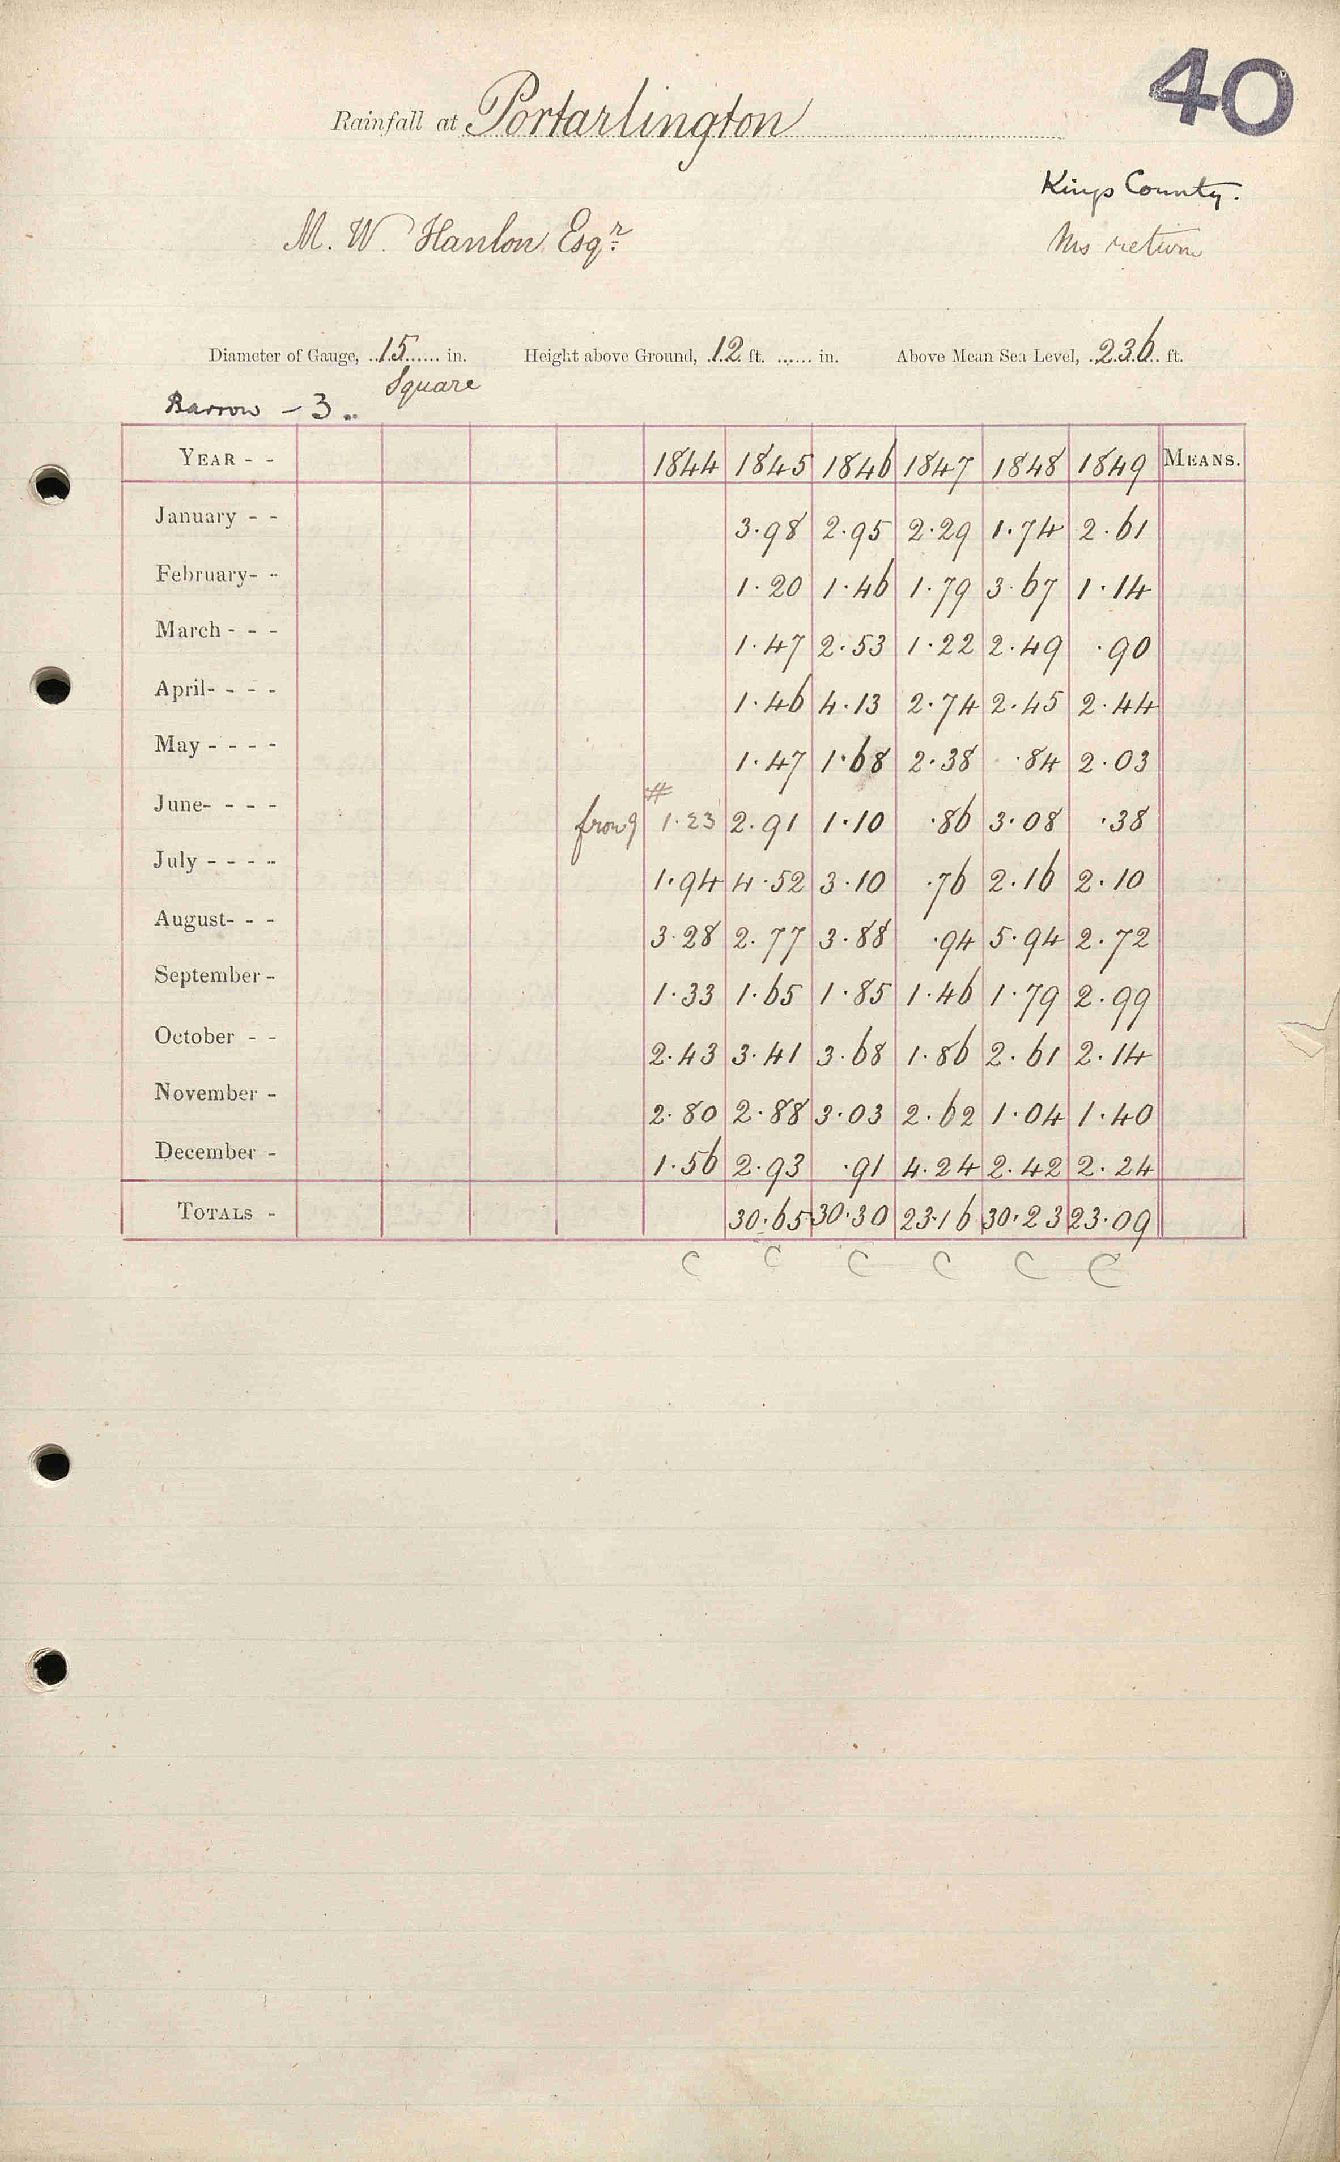 40
Rainfall at Portarlington
Kings County.
M. W. Hanlon Esqr
Ms return
Diameter of Gauge, 15 in. Height above Ground, 12 ft. in. Above Mean Sea Level, 236 ft.
Square
Barrow - 3
YEAR - - 1844 1845 1846 1847 1848 1849 MEANS.
January - - 3.98 2.95 2.29 1.74 2.61
February- - 1.20 1.46 1.79 3.67 1.14
March - - - 1.47 2.53 1.22 2.49 .90
April- - - - 1.46 4.13 2.74 2.45 2.44
May - - - - 1.47 1.68 2.38 .84 2.03
#
June- - - - from 9 1.23 2.91 1.10 .86 3.08 .38
July - - - - 1.94 4.52 3.10 .76 2.16 2.10
August- - - 3.28 2.77 3.88 .94 5.94 2.72
September - 1.33 1.65 1.85 1.46 1.79 2.99
October - - 2.43 3.41 3.68 1.86 2.61 2.14
November - 2.80 2.88 3.03 2.62 1.04 1.40
December - 1.56 2.93 .91 4.24 2.42 2.24
TOTALS - 30.65 30.30 23.16 30.23 23.09
C C C C C C